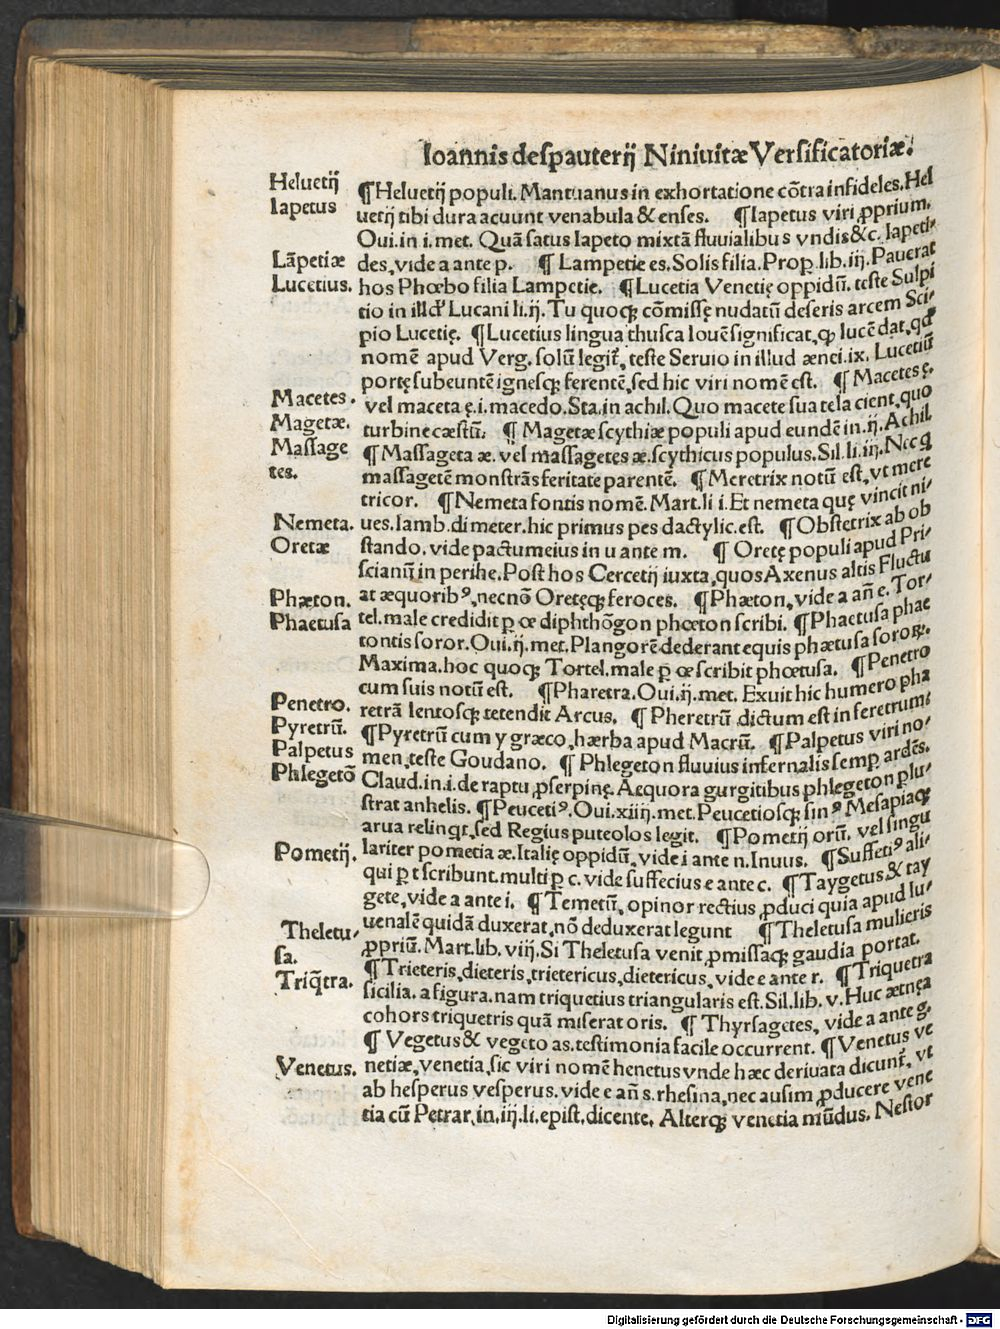 Ioannis despauterij Niniuitæ Versificatoriæ.
Heluetij
Iapetus
Lãpetiæ
Lucetius.
Macetes.
Magetæ.
Massage
tes.
Nemeta.
Oretæ
Phæton.
Phaetusa
Penetro.
Pyretrũ.
Palpetus
Phlegetõ
Pometij.
Theletu-
sa.
Triq̃tra.
Venetus.
¶Heluetij populi. Mantuanus in exhortatione cõtra infideles. Hel
uetij tibi dura acuunt venabula & enses. ¶Iapetus viri ꝓprium.
Oui. in i. met. Quã satus Iapeto mixtã fluuialibus vndis &c. Iapeti-
des, vide a ante p. ¶ Lampetie es. Solis filia. Prop. lib. iij. Pauerat
hos Phœbo filia Lampetie. ¶Lucetia Venetię oppidũ. teste Sulpi
tio in illd' Lucani li. ij. Tu quoqꝫ cõmissę nudatũ deseris arcem Sci-
pio Lucetię. ¶Lucetius lingua thusca Iouẽ significat, ꝙ lucẽ dat, qđ
nomẽ apud Verg. solũ legit̃, teste Seruio in illud ænei. ix. Lucetiũ
portę subeuntẽ ignesqꝫ ferentẽ, sed hic viri nomẽ est. ¶ Macetes ę.
vel maceta ę. i. macedo. Sta. in achil. Quo macete sua tela cient, quo
turbine cæstũ. ¶ Magetæ scythiæ populi apud eundẽ in. ij. Achil.
¶Massageta æ. vel massagetes æ. scythicus populus. Sil. li. iij. Nec q
massagetẽ monstrãs feritate parentẽ. ¶Meretrix notũ est, vt mere
tricor. ¶Nemeta fontis nomẽ. Mart. li i. Et nemeta quę vincit ni-
ues. Iamb. dimeter. hic primus pes dactylic. est. ¶Obstetrix ab ob
stando. vide pactumeius in u ante m. ¶ Oretę populi apud Pri-
scianũ in perihe. Post hos Cercetij iuxta, quos Axenus altis Fluctu
at æquoribꝰ, necnõ Oretęqꝫ feroces. ¶Phæton, vide a añ e. Tor-
tel. male credidit ꝑ œ diphthõgon phœton scribi. ¶Phaetusa phae
tontis soror. Oui. ij. met. Plangorẽ dederant equis phætusa sororꝫ.
Maxima. hoc quoqꝫ Tortel. male ꝑ œ scribit phœtusa. ¶Penetro
cum suis notũ est. ¶Pharetra. Oui. ij. met. Exuit hic humero pha
retrã lentosqꝫ tetendit Arcus. ¶ Pheretrũ dictum est in feretrum:
¶Pyretrũ cum y græco, hærba apud Macrũ. ¶Palpetus viri no-
men, teste Goudano. ¶ Phlegeton fluuius infernalis semꝑ ardẽs.
Claud. in. i. de raptu ꝓserpinę. Aequora gurgitibus phlegeton plu-
strat anhelis. ¶Peucetiꝰ. Oui. xiiij. met. Peucetiosqꝫ sinꝰ Mesapiaqꝫ
arua relinqt, sed Regius puteolos legit. ¶Pometij orũ. vel singu
lariter pometia æ. Italię oppidũ, vide i ante n. Inuus. ¶Suffetiꝰ ali-
qui ꝑ t scribunt. multi ꝑ c. vide suffecius e ante c. ¶Taygetus, & tay
gete, vide a ante i. ¶Temetũ, opinor rectius ꝓduci quia apud lu-
uenalẽ quidã duxerat, nõ deduxerat legunt ¶Theletusa mulieris
ꝓpriũ. Mart. lib. viij. Si Theletusa venit ꝓmissaqꝫ gaudia portat.
¶Trieteris, dieteris, trietericus, dietericus, vide e ante r. ¶Triquetra
sicilia. a figura. nam triquetius triangularis est. Sil. lib. v. Huc ætnęa
cohors triquetris quã miserat oris. ¶ Thyrsagetes, vide a ante g.
¶ Vegetus & vegeto as. testimonia facile occurrent. ¶Venetus ve
netiæ, venetia, sic viri nomẽ henetus vnde hæc deriuata dicunt̃, vt
ab hesperus vesperus. vide e añ s. rhesina, nec ausim ꝓducere vene
tia cũ Petrar. in. iij. li. epist. dicente, Alterqꝫ venetia mũdus. Nestor
Digitalisierung gefördert durch die Deutsche Forschungsgemeinschaft - DFG